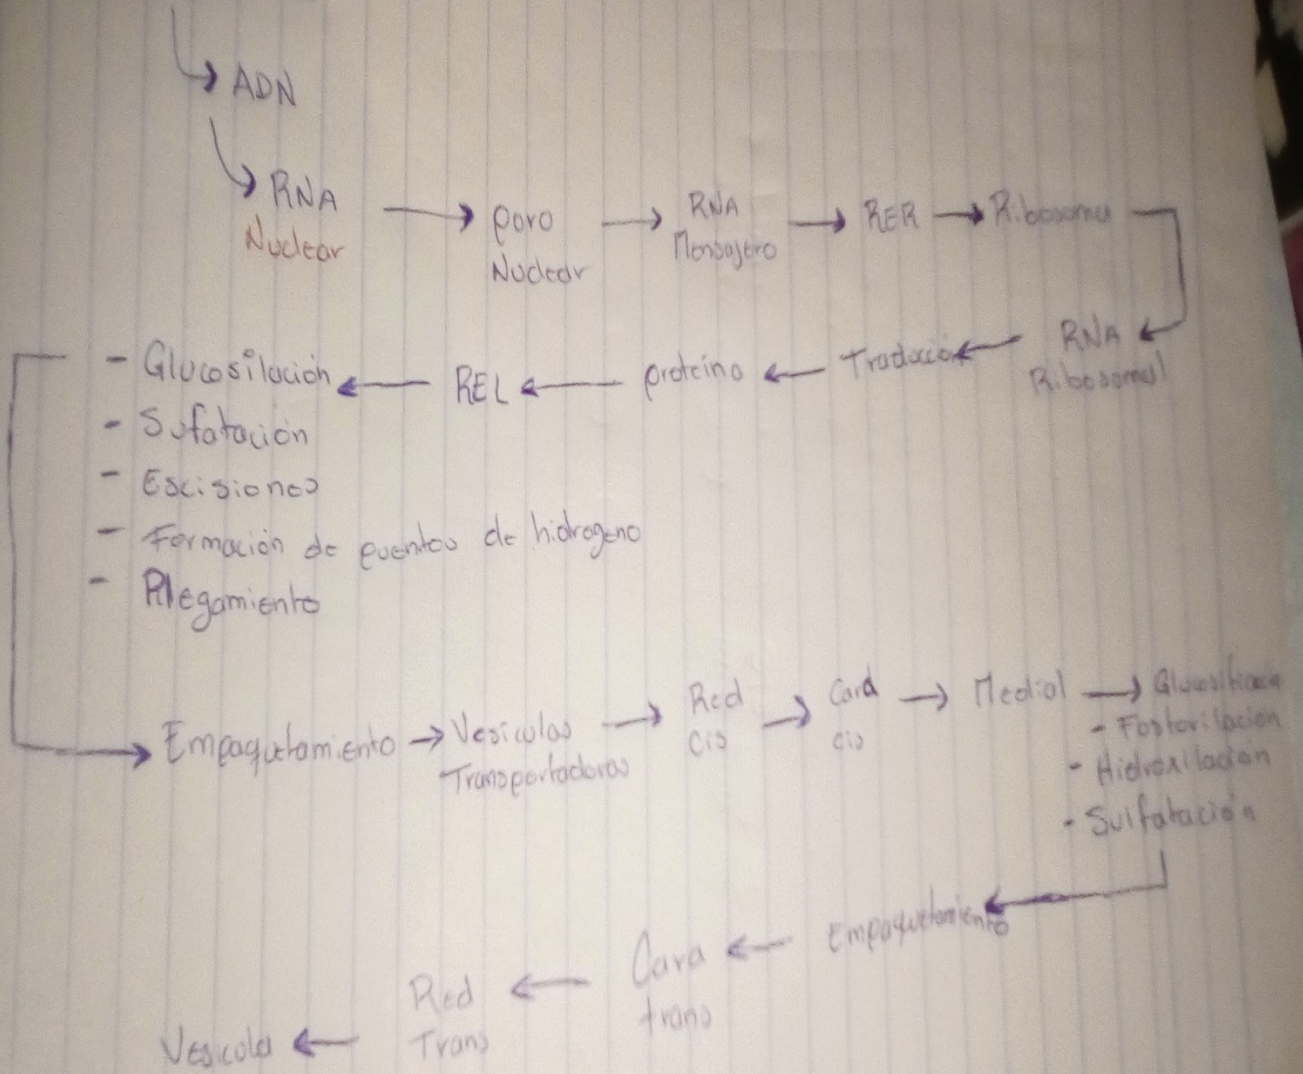 ADN
RNA
Nuclear
poro
Nuclear
RNA
Mensajero
RER
Ribosoma
RNA
Ribosomal
Traducción
proteína
REL
- Glucosilación
- Sufatación
- Escisiones
- Formación de puentes de hidrogeno
- Plegamiento
Empaquetamiento
Vesículas
Transportadoras
Red
cis
Cara
cis
Medial
Glucosilación
- Fosforilación
- Hidroxilación
- Sulfatación
Empaquetamiento
Cara
trans
Red
Trans
Vesicula